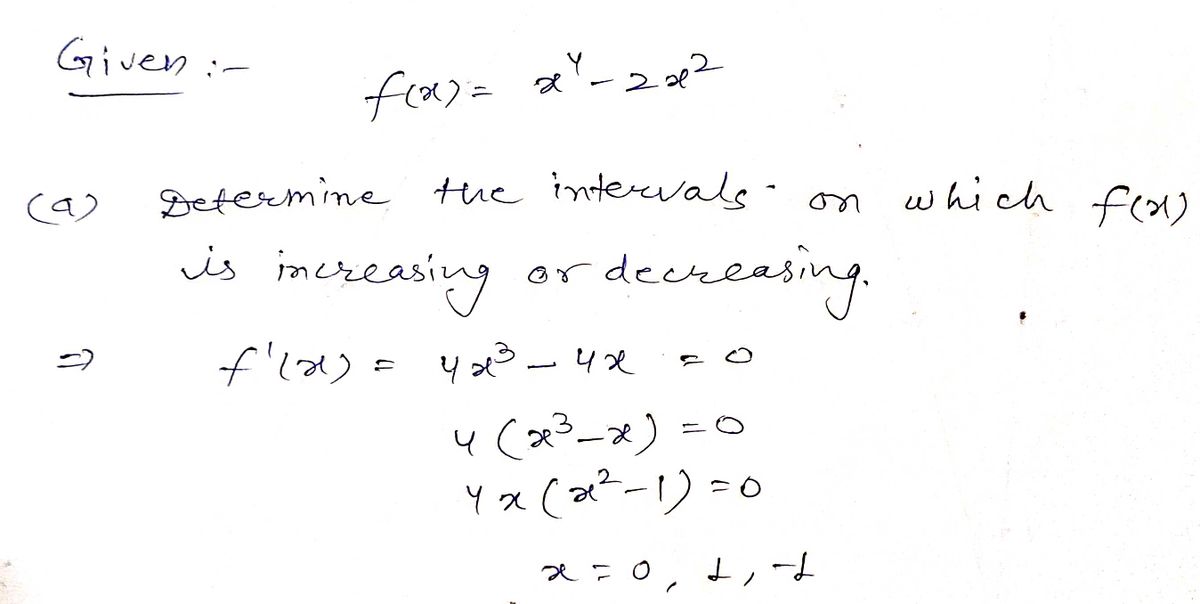 Given :-
f(x) = x⁴ - 2x²
(a) Determine the intervals on which f(x)
is increasing or decreasing.
⇒ f'(x) = 4x³ - 4x = 0
4(x³-x) = 0
4x(x²-1) = 0
x = 0, 1, -1